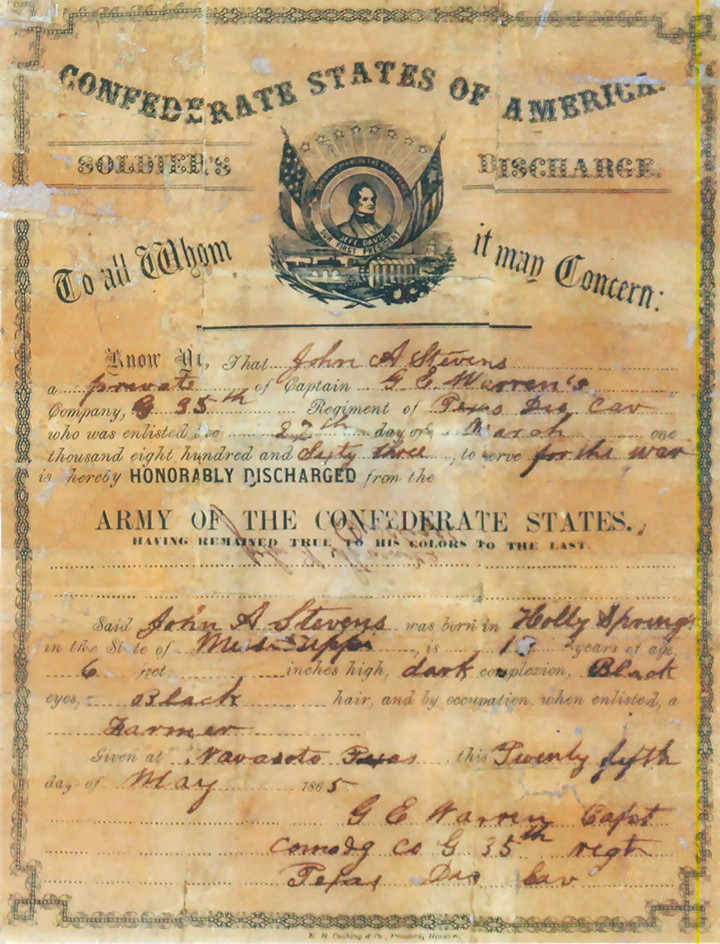 CONFEDERATE STATES OF AMERICA.
SOLDIER'S DISCHARGE.
JEFF DAVIS
OUR FIRST PRESIDENT
To all Whom it may Concern:
Know Ye, That John A Stevens
a private of Captain G E Warren's
Company, G 35th Regiment of Texas Dis Cav
who was enlisted the 27th day of March one
thousand eight hundred and Sixty three, to serve for the war
is hereby HONORABLY DISCHARGED from the
ARMY OF THE CONFEDERATE STATES.
HAVING REMAINED TRUE TO HIS COLORS TO THE LAST.
Said John A Stevens was born in Holly Springs
in the State of Mississippi is years of age,
6 feet inches high, dark complexion, Black
eyes, Black hair, and by occupation, when enlisted, a
Farmer
Given at Navasoto Texas this Twenty fifth
day of May 1865
G E Warren Capt
Comdg Co G 35th regt
Texas Dis Cav
E. H. Cushing & Co., Printers, Houston.